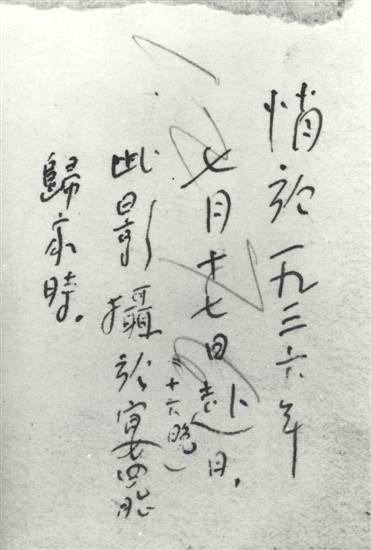 悄於一九三六年
七月十七日赴日,
(十六晚)
此影攝於宴罷
歸家時.